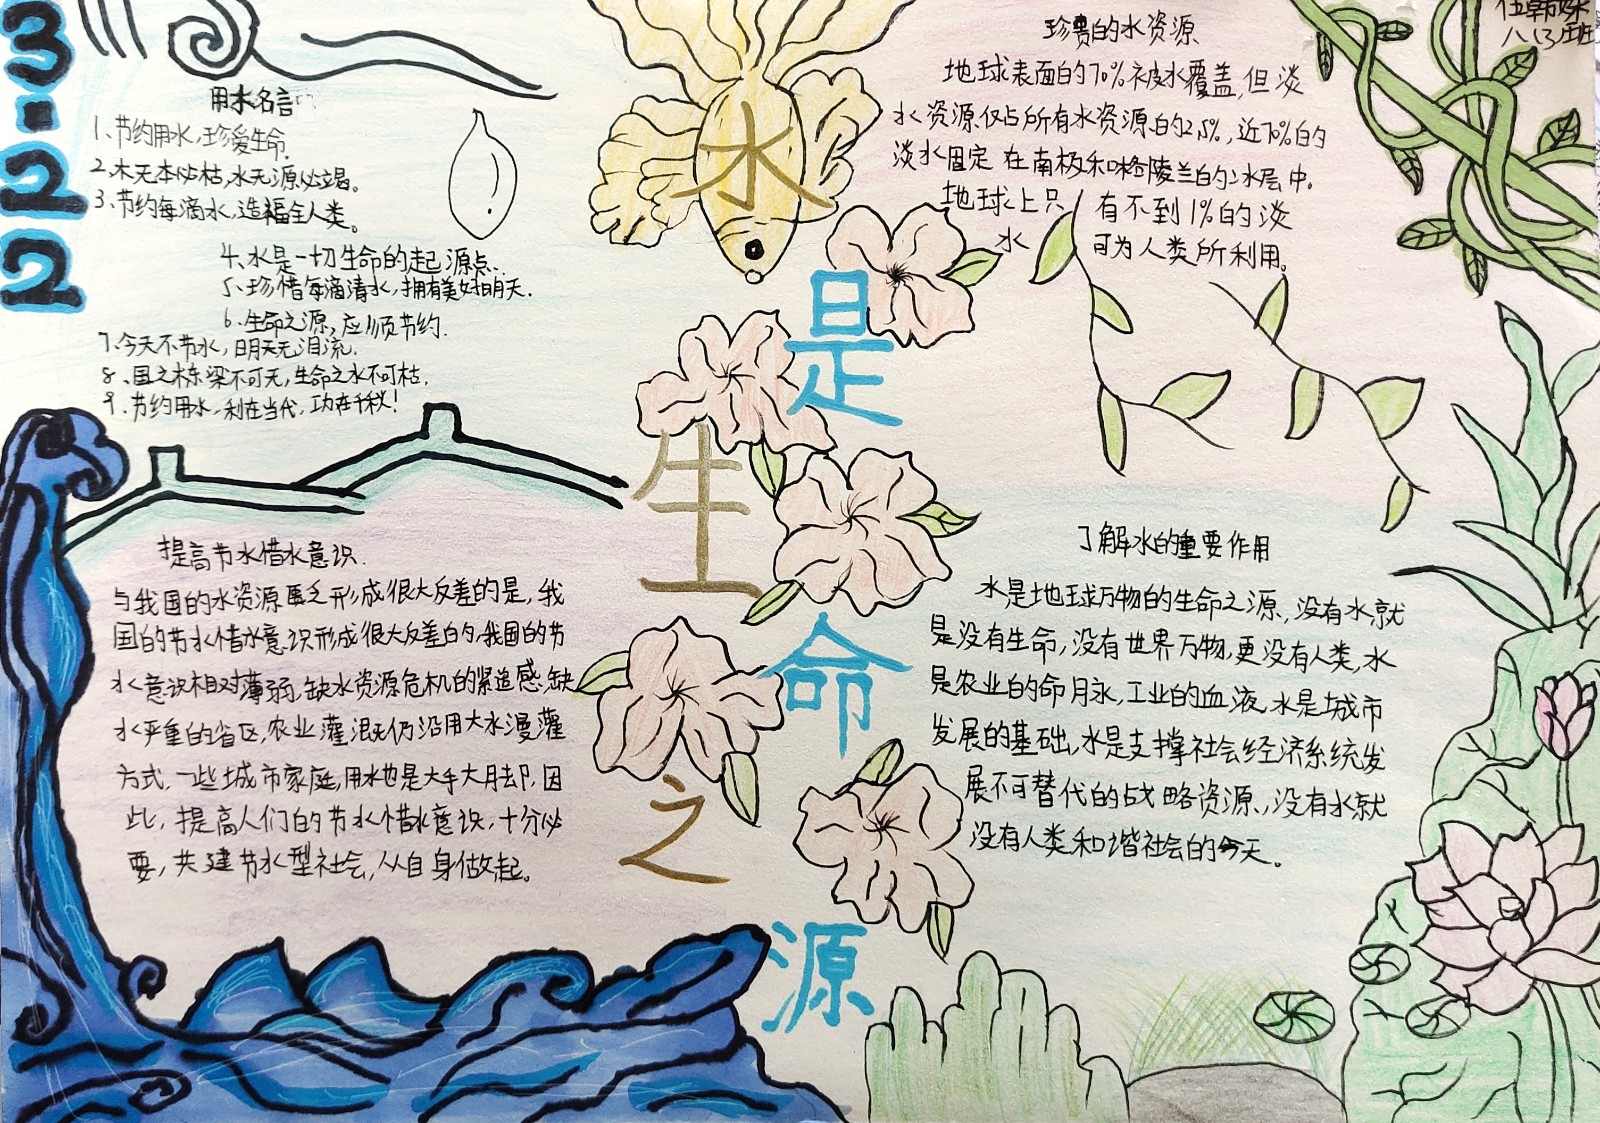 3-22
用水名言
1、节约用水,珍爱生命.
2、木无本必枯,水无源必竭。
3、节约每滴水,造福全人类。
4、水是一切生命的起源点.
5、珍惜每滴清水,拥有美好明天.
6、生命之源,应须节约.
7、今天不节水,明天无泪流.
8、国之栋梁不可无,生命之水不可枯.
9、节约用水,利在当代,功在千秋!
水
是
生
命
之
源
珍贵的水资源
地球表面的70%被水覆盖,但淡
水资源仅占所有水资源的2.5%,近70%的
淡水固定在南极和格陵兰的冰层中.
地球上只有不到1%的淡
水可为人类所利用。
八(3)班
提高节水惜水意识.
与我国的水资源匮乏形成很大反差的是,我
国的节水惜水意识形成很大反差的,我国的节
水意识相对薄弱,缺水资源危机的紧迫感,缺
水严重的省区,农业灌溉仍沿用大水漫灌
方式,一些城市家庭,用水也是大手大脚,因
此,提高人们的节水惜水意识,十分必
要,共建节水型社会,从自身做起。
了解水的重要作用
水是地球万物的生命之源,没有水就
是没有生命,没有世界万物,更没有人类,水
是农业的命脉,工业的血液,水是城市
发展的基础,水是支撑社会经济系统发
展不可替代的战略资源,没有水就
没有人类和谐社会的今天。